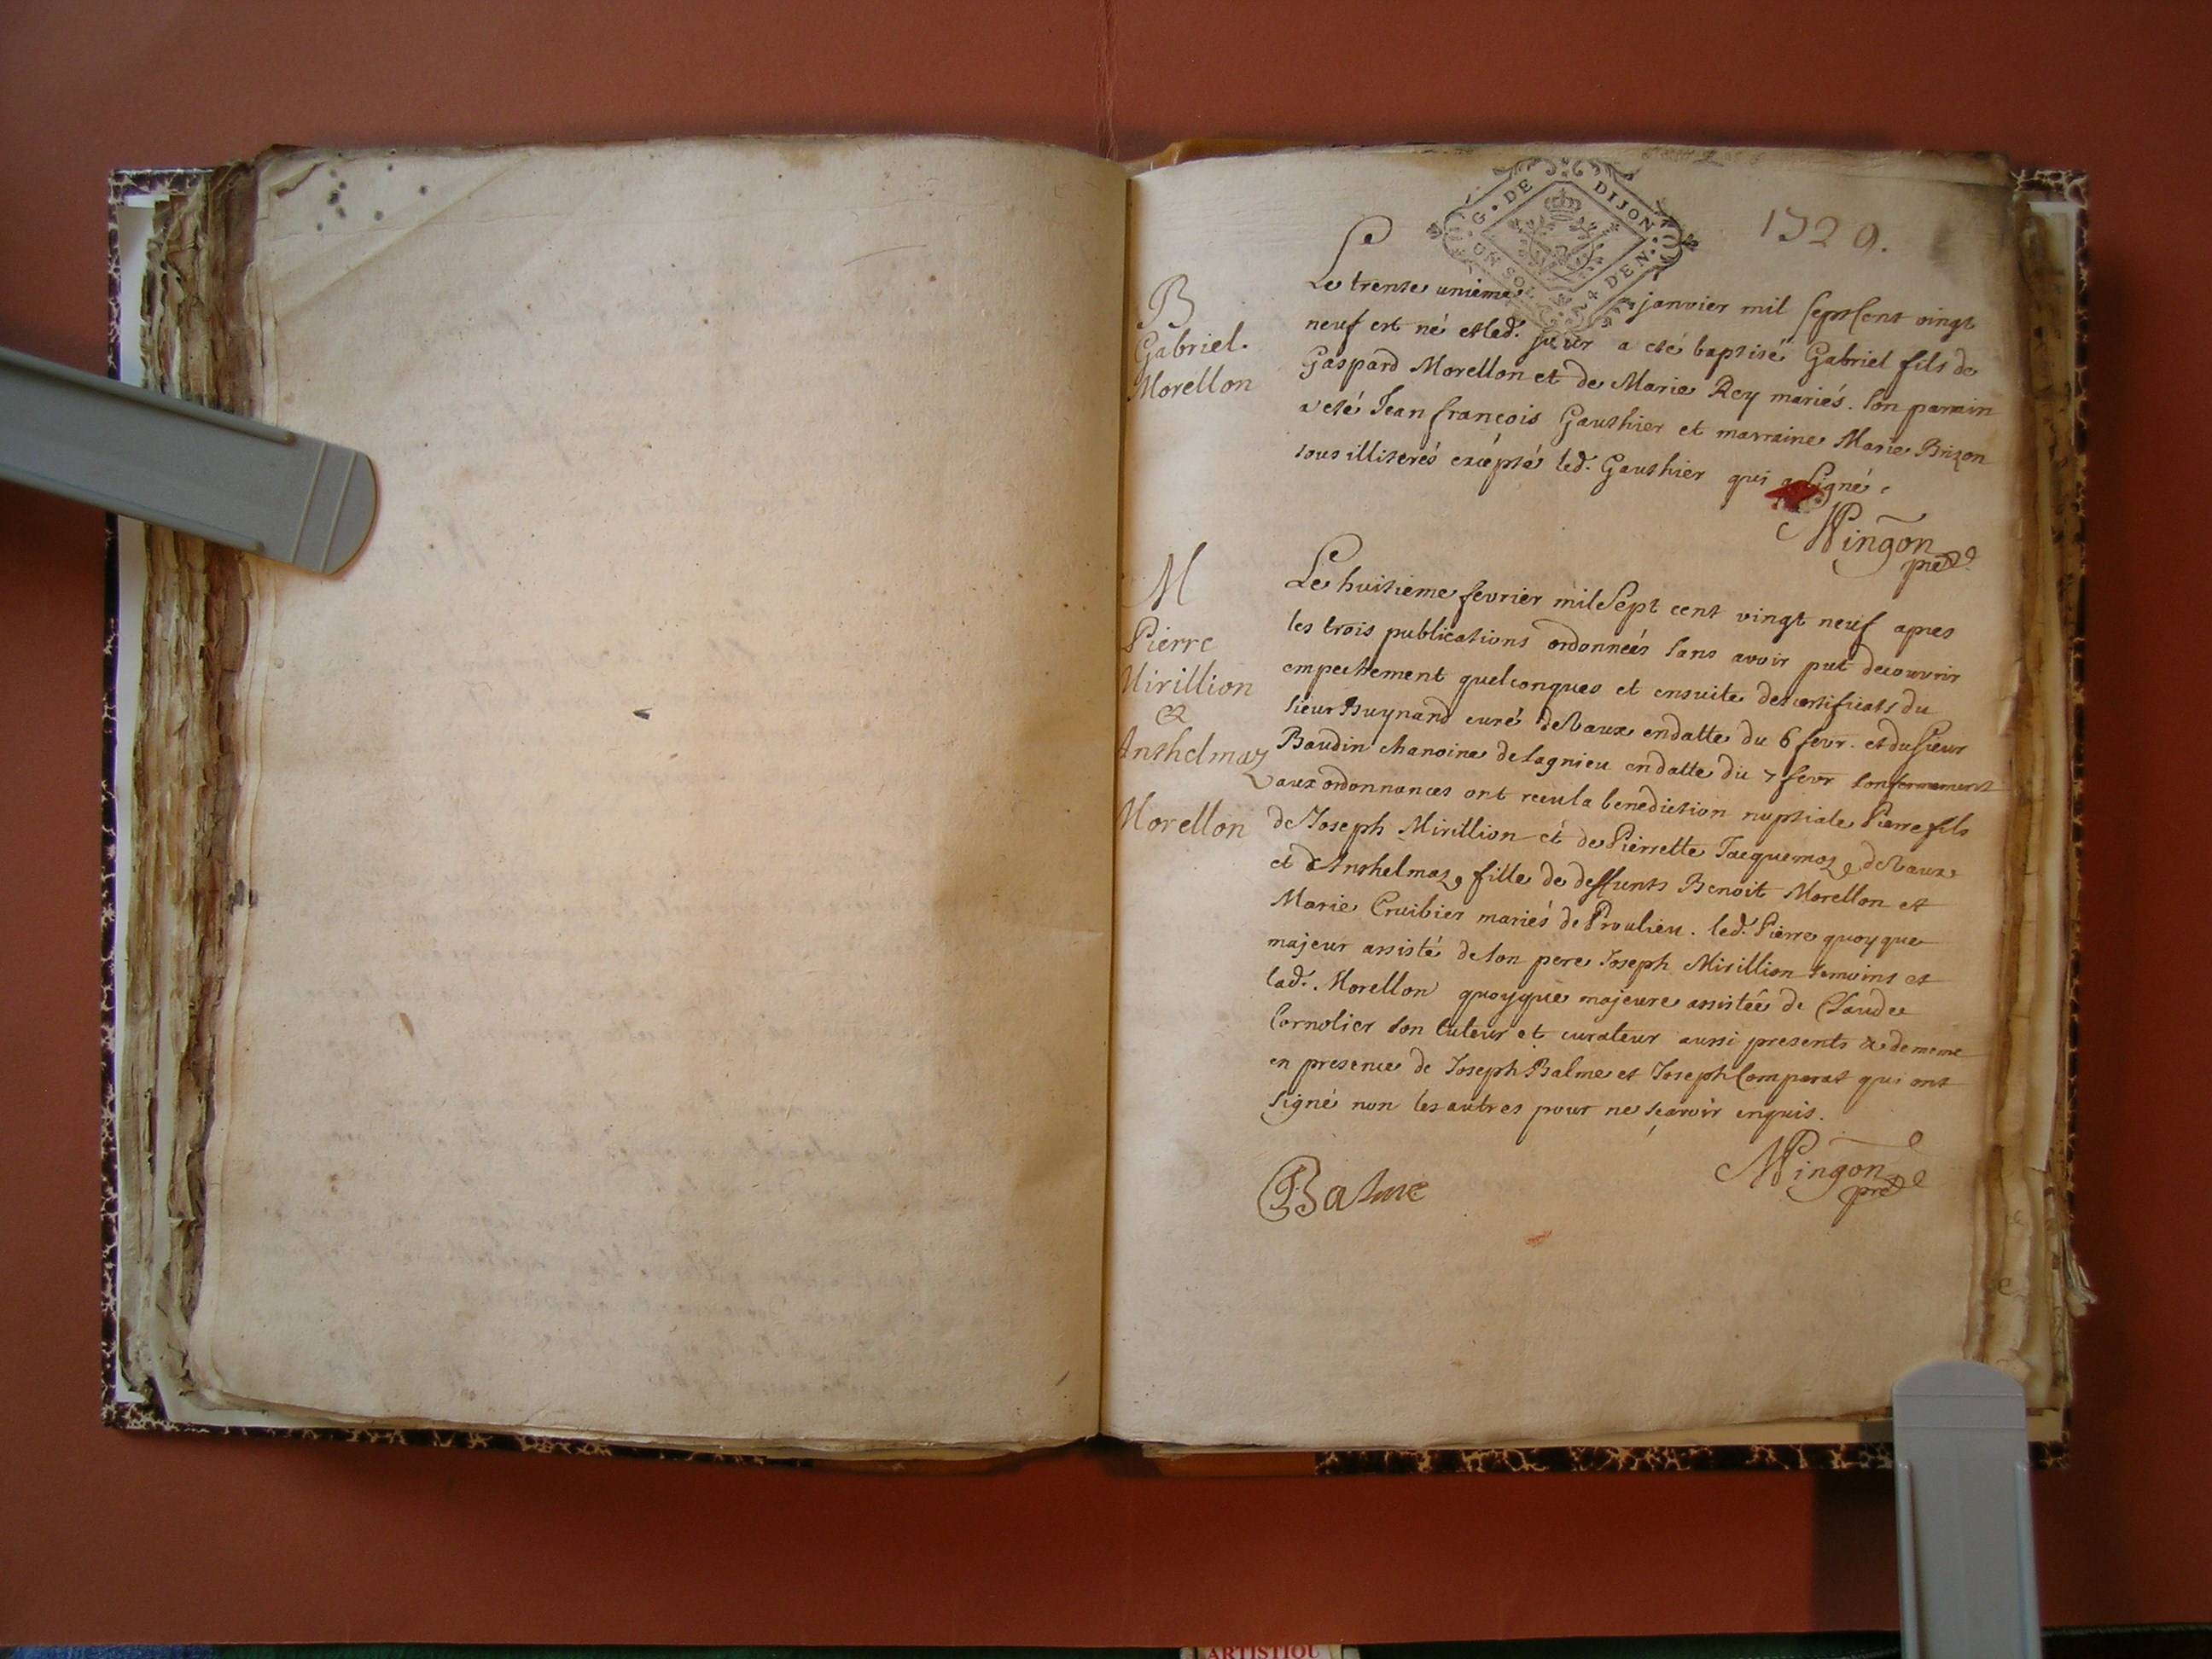 G. DE DIJON
UN SOL 4 DEN.
1729.
B
Gabriel.
Morellon
Le trente unième janvier mil sept cent vingt
neuf est né et led. jour a eté baptisé Gabriel fils de
Gaspard Morellon et de Marie Rey mariés. son parrain
a eté Jean françois Gauthier et marraine Marie Brizon
tous illiterés excepté led. Gauthier qui a signé.
Mingon
pre
M
Pierre
Mirillion
&
Anthelmaz
Morellon
Le huitieme fevrier mil Sept cent vingt neuf apres
les trois publications ordonnées sans avoir put decouvrir
empechement quelconques et ensuite des certificats du
sieur Buynand curé de Vaux en datte du 6 fevr. et du sieur
Baudin chanoine de Lagnieu en datte du 7 fevr conformement
aux ordonnances ont receu la benediction nuptiale Pierre fils
de Joseph Mirillion et de Pierrette Jacquemoz de Vaux
et d'Anthelmaz fille de deffunts Benoit Morellon et
Marie Cruibier mariés de Proulieu. led. Pierre quoyque
majeur assisté de son pere Joseph Mirillion temoins et
lad. Morellon quoyque majeure assistée de Claude
Cornolier son tuteur et curateur aussi presents & de meme
en presence de Joseph Balme et Joseph Comparat qui ont
signé non les autres pour ne sçavoir enquis.
Mingon
pre
Balme
ARTISTIQU